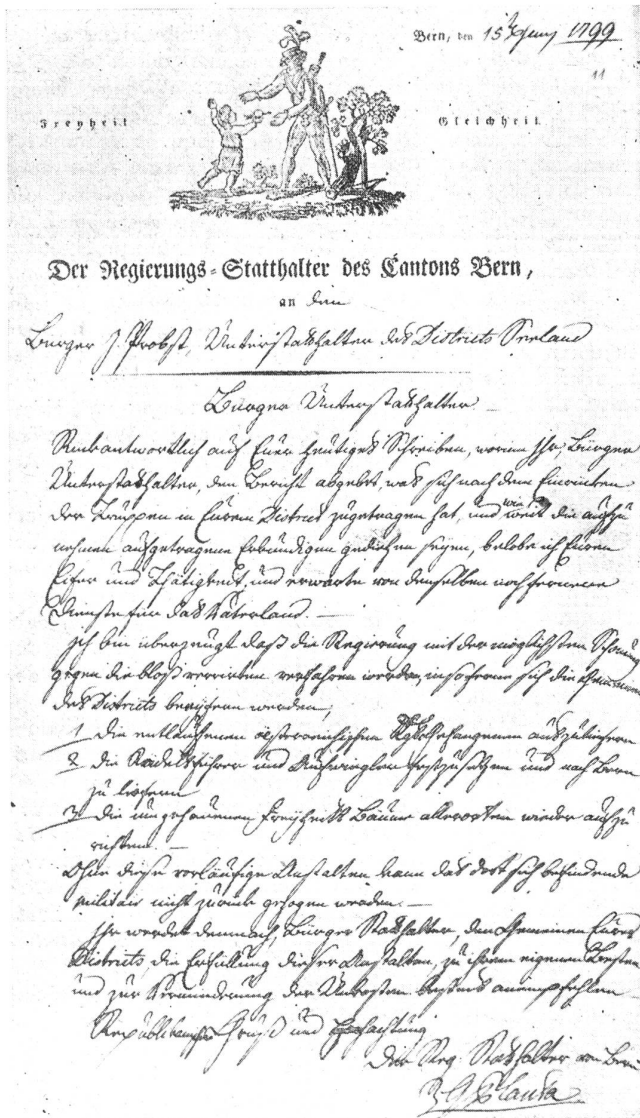 Bern, den 15 Juny 1799
11
Freyheit. Gleichheit.
Der Regierungs-Statthalter des Cantons Bern,
an den
Burger J. Probst, Unterstatthalter des Districts Seeland
Burger Unterstatthalter
Rückantwortlich auf Euer heutiges Schreiben, worinn Ihr Bürger
Unterstatthalter, den Bericht abgebet, was sich nach dem Einrücken
der Truppen in Eurem District zugetragen hat, und wie weit die aufzu
nehmen aufgetragene Erkundigen gediehen seyen, belobe ich Euren
Eifer und Thätigkeit, und erwarte von denselben noch fernere
Dienste für das Vaterland. —
Ich bin überzeugt daß die Regierung mit der möglichsten Schonung
gegen die bloß verirrten verfahren werde, insoferne sich die Gemeinen
des Districts beeyfern werden,
1 die entlaufenen östereichischen Gefangenen auszuliefern
2 die Rädelsführer und Aufwiegler festzusetzen und nach Bern
zu liefern
3 die umgehauenen Freyheits Bäume allerorten wieder aufzu
richten. —
Ohne diese vorläufige Anstalten kann das dort sich befindende
militär nicht zurück gezogen werden. —
Ihr werdet demnach, Bürger Statthalter, den Gemeinen Eures
Districts, die Erfüllung dieser Anstalten, zu ihrem eigenen Besten
und zur Verminderung der Unkosten bestens anempfehlen
Republikanischer Gruß und Hochachtung
Der Reg. Statthalter von Bern